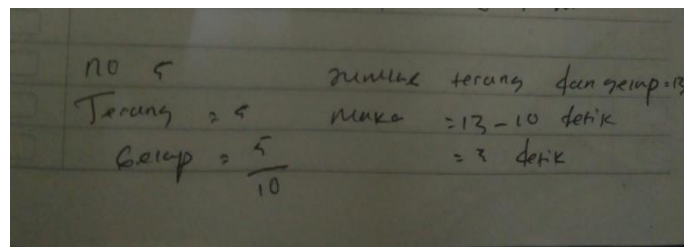 no 5
Terang = 5
Gelap = 5
10
Jumlah terang dan gelap = 13
maka = 13 - 10 detik
= 3 detik